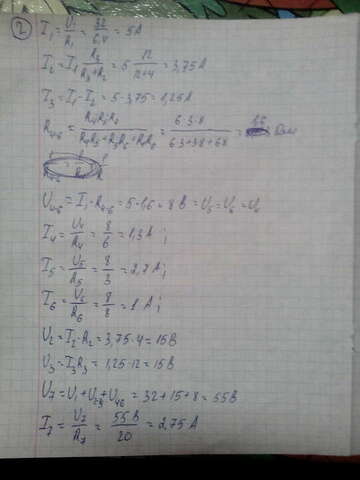 2
I₁ = U₁/R₁ = 32/6,4 = 5A
I₂ = I₁ R₃/(R₃+R₂) = 5 · 12/(12+4) = 3,75A
I₃ = I₁ - I₂ = 5 - 3,75 = 1,25A
R₄₋₆ = R₄R₅R₆/(R₄R₅+R₅R₆+R₄R₆) = 6·3·8/(6·3+3·8+6·8) = 1,6 Ом
U₄₋₆ = I₁ · R₄₋₆ = 5 · 1,6 = 8 В = U₅ = U₆ = U₄
I₄ = U₄/R₄ = 8/6 = 1,3 A;
I₅ = U₅/R₅ = 8/3 = 2,7 A;
I₆ = U₆/R₆ = 8/8 = 1 A;
U₂ = I₂ · R₂ = 3,75 · 4 = 15В
U₃ = I₃R₃ = 1,25 · 12 = 15В
U₇ = U₁ + U₂₃ + U₄₆ = 32 + 15 + 8 = 55В
I₇ = U₇/R₇ = 55В/20 = 2,75 A